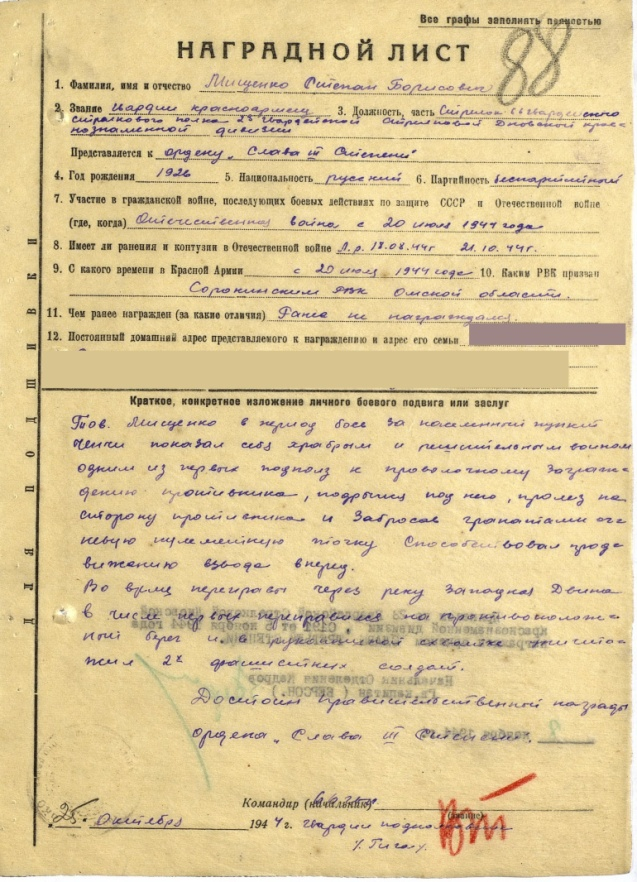 Все графы заполнять полностью
88
НАГРАДНОЙ ЛИСТ
1. Фамилия, имя и отчество Мищенко Степан Борисович
2. Звание гвардии красноармеец 3. Должность, часть Стрелок гвардейского
стрелкового полка гвардейской стрелковой Дновской крас-
нознаменной дивизии
Представляется к ордену „Слава III Степени"
4. Год рождения 1926 5. Национальность русский 6. Партийность беспартийный
7. Участие в гражданской войне, последующих боевых действиях по защите СССР и Отечественной войне
(где, когда) Отечественная война с 20 июля 1944 года
8. Имеет ли ранения и контузии в Отечественной войне Л.р. 18.08.44г 21.10.44г.
9. С какого времени в Красной Армии с 20 июля 1944 года 10. Каким РВК призван
Сорокинским РВК Омской области.
11. Чем ранее награжден (за какие отличия) Ранее не награждался.
12. Постоянный домашний адрес представляемого к награждению и адрес его семьи
ДЛЯ ПОДШИВКИ
Краткое, конкретное изложение личного боевого подвига или заслуг
Тов. Мищенко в период боев за населенный пункт
показал себя храбрым и решительным воином
одним из первых подполз к проволочному заграж-
дению противника, под него, пролез на
сторону противника и забросав гранатами ог
невую пулеметную точку способствовал прод
вижению взвода вперед.
Во время переправы через реку Западная Двина
в числе первых переправился на противополож
ный берег и в рукопашной схватке уничто
жил 2х фашистских солдат.
Начальник Отделения Кадров
Гв. капитан
Достоин правительственной награды
ордена „Слава III Степени.
2 ноября 1944
Командир (начальник)
(звание)
"25" Октября 1944 г. гвардии подполковник